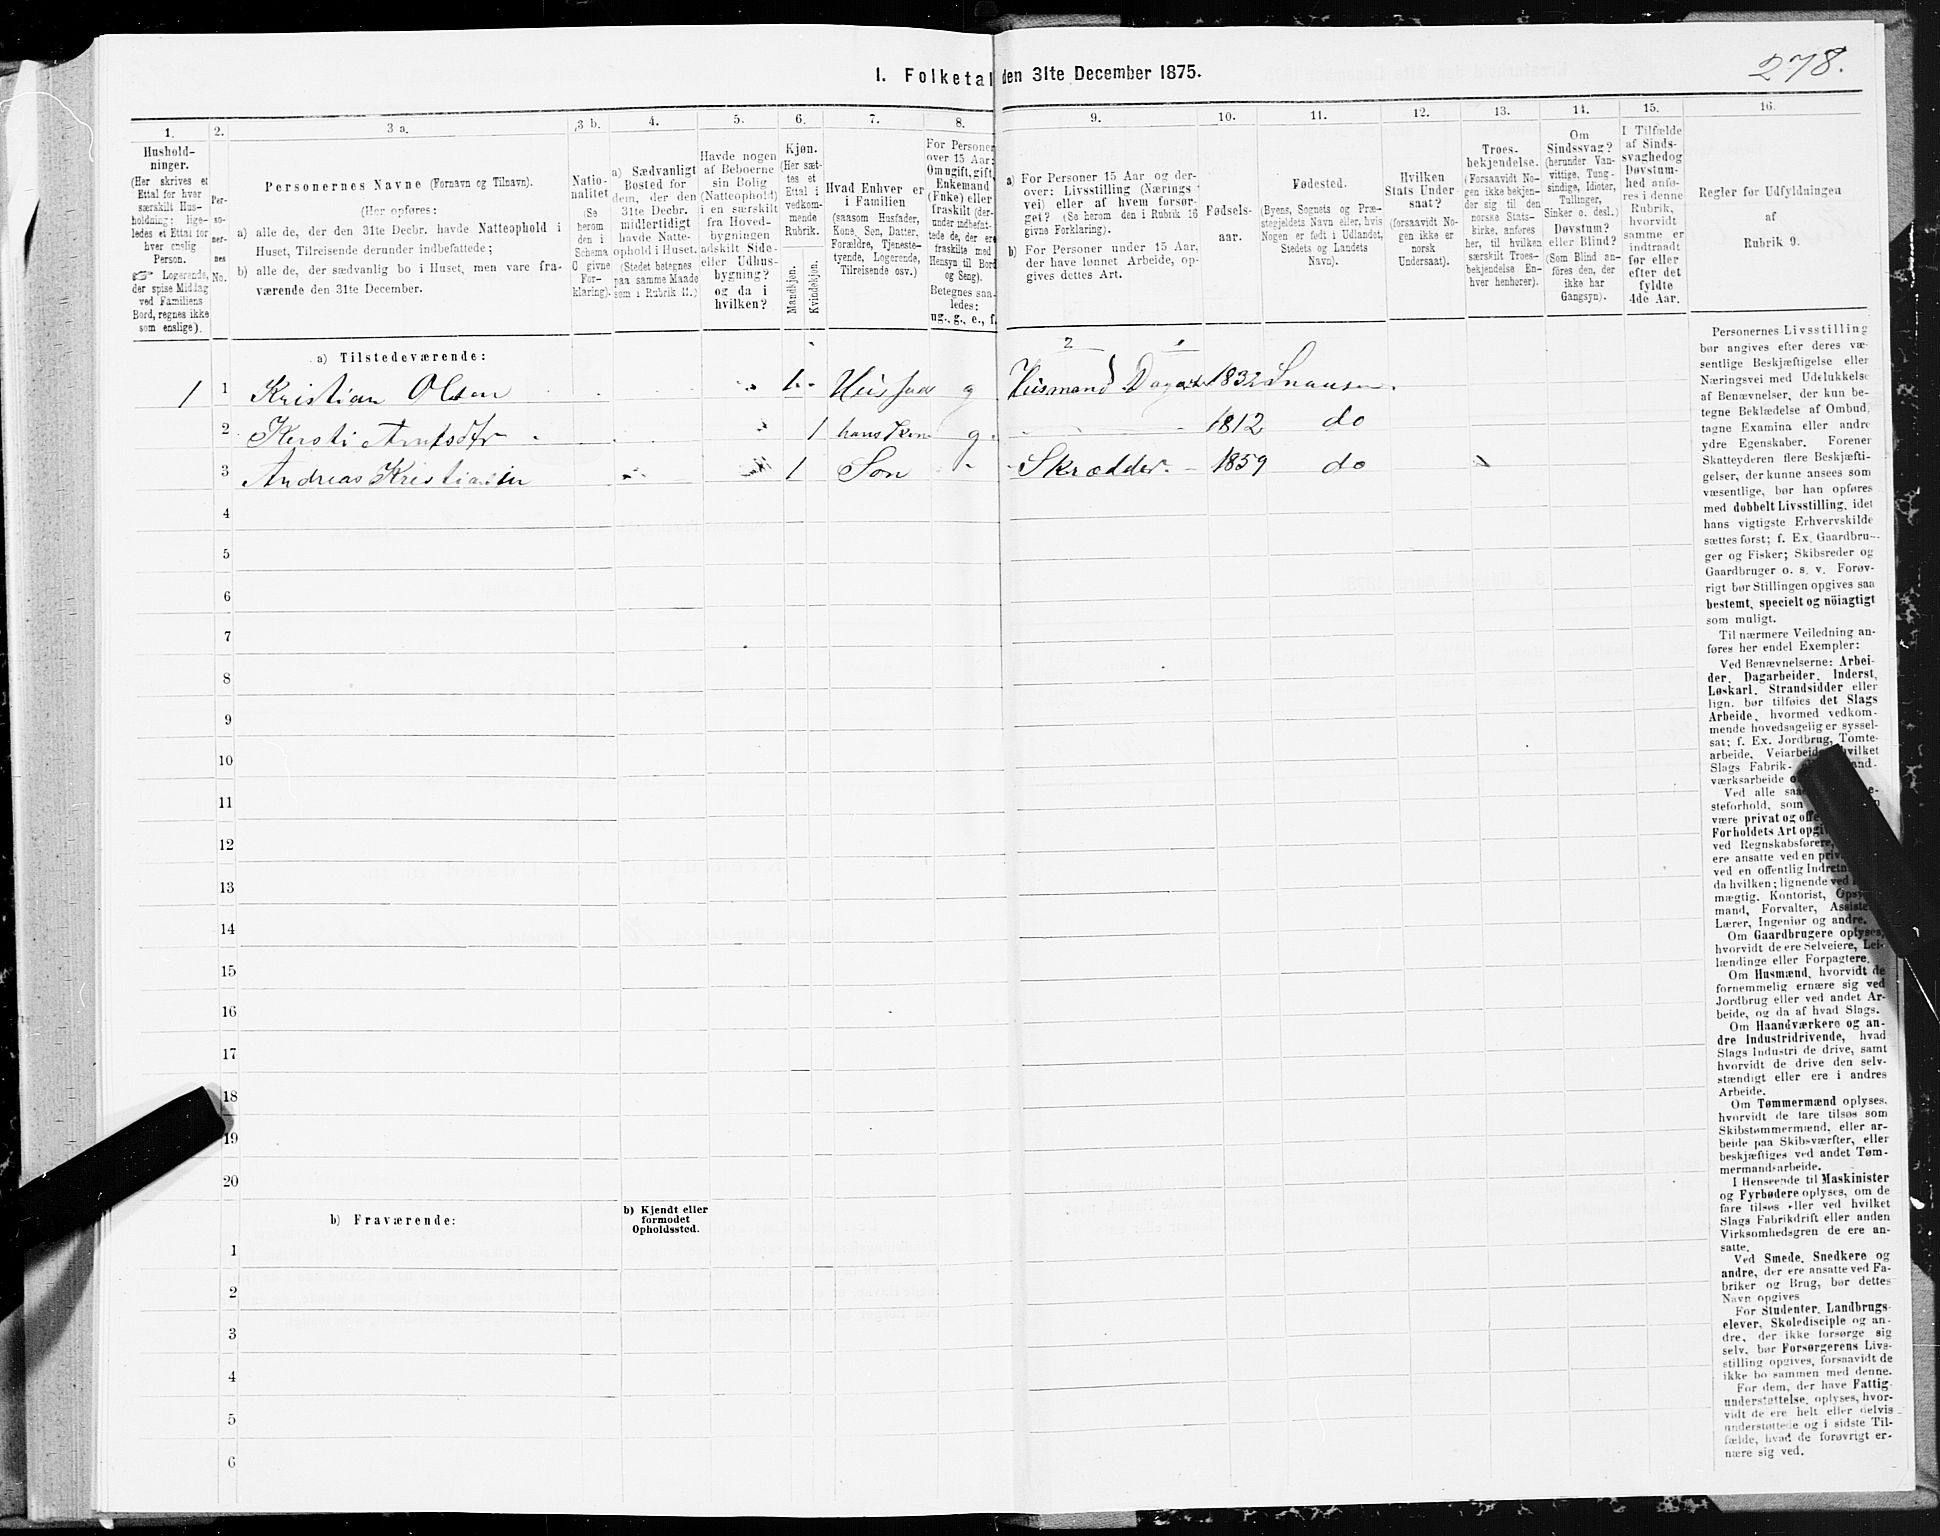 278.
I. Folketal den 31te December 1875.
1.
Hushold-
ninger.
(Her skrives et
Ettal for hver
særskilt Hus-
holdning; lige-
ledes et Ettal for
hver enslig
Person.
☞ Logerende,
der spise Middag
ved Familiens
Bord, regnes ikke
som enslige).
2.
Per-
so-
ner-
nes
No.
3 a.
Personernes Navne (Fornavn og Tilnavn).
(Her opføres:
a) alle de, der den 31te Decbr. havde Natteophold i
Huset, Tilreisende derunder indbefattede;
b) alle de, der sædvanlig bo i Huset, men vare fra-
værende den 31te December.
3 b.
Natio-
nalitet
(Se
herom
den i
Schema
C givne
For-
klaring).
4.
a) Sædvanligt
Bosted for
dem, der den
31te Decbr.
midlertidigt
havde Natte-
ophold i Huset.
(Stedet betegnes
paa samme Maade
som i Rubrik 11.)
5.
Havde nogen
af Beboerne
sin Bolig
(Natteophold)
i en særskilt
fra Hoved-
bygningen
adskilt Side-
eller Udhus-
bygning?
og da i
hvilken?
6.
Kjøn.
(Her sæt-
tes et
Ettal i
vedkom-
mende
Rubrik.
Mandkjøn.
Kvindekjøn.
7.
Hvad Enhver er
i Familien
(saasom Husfader,
Kone, Søn, Datter,
Forældre, Tjeneste-
tyende, Logerende,
Tilreisende osv.)
8.
For Personer
over 15 Aar:
Om ugift, gift,
Enkemand
(Enke) eller
fraskilt (der-
under indbefat-
tede de, der ere
fraskilte med
Hensyn til Bord
og Seng).
Betegnes saa-
ledes:
ug., g., e., f.
9.
a) For Personer 15 Aar og der-
over: Livsstilling (Nærings-
vei) eller af hvem forsør-
get? (Se herom den i Rubrik 16
givne Forklaring).
b) For Personer under 15 Aar,
der have lønnet Arbeide, op-
gives dettes Art.
10.
Fødsels-
aar.
11.
Fødested.
(Byens, Sognets og Præ-
stegjeldets Navn eller, hvis
Nogen er født i Udlandet,
Stedets og Landets
Navn).
12.
Hvilken
Stats Under-
saat?
(forsaavidt No-
gen ikke er
norsk
Undersaat).
13.
Troes-
bekjendelse.
(Forsaavidt No-
gen ikke bekjen-
der sig til den
norske Stats-
kirke, anføres
her, til hvilken
særskilt Troes-
bekjendelse En-
hver henhører).
14.
Om
Sindssvag?
(herunder Van-
vittige, Tung-
sindige, Idioter,
Tullinger,
Sinker o. desl.)
Døvstum?
eller Blind?
(Som Blind an-
føres den, der
ikke har
Gangsyn).
15.
I Tilfælde
af Sinds-
svaghed og
Døvstum-
hed anfø-
res i denne
Rubrik,
hvorvidt
samme er
indtraadt
før eller
efter det
fyldte
4de Aar.
16.
Regler før Udfyldningen
af
Rubrik 9.
a) Tilstedeværende:
1 1 Kristian Olsen 1 Husfad g Husmand Dagarb 1832 Snausen
2 Kersti Arntsdtr 1 hans Kone g 1812 do
3 Andreas Kristiansen 1 Søn Skrædder 1859 do
4
5
6
7
8
9
10
11
12
13
14
15
16
17
18
19
20
b) Fraværende:
b) Kjendt eller
formodet
Opholdssted.
1
2
3
4
5
6
Personernes Livsstilling
bør angives efter deres væ-
sentlige Beskjæftigelse eller
Næringsvei med Udelukkelse
af Benævnelser, der kun be-
tegne Beklædelse af Ombud,
tagne Examina eller andre
ydre Egenskaber. Forener
Skatteyderen flere Beskjæfti-
gelser, der kunne ansees som
væsentlige, bør han opføres
med dobbelt Livsstilling, idet
hans vigtigste Erhvervskilde
sættes først; f. Ex. Gaardbru-
ger og Fisker; Skibsreder og
Gaardbruger o. s. v. Forøv-
rigt bør Stillingen opgives saa
bestemt, specielt og nöiagtigt
som muligt.
Til nærmere Veiledning an-
føres her endel Exempler:
Ved Benævnelserne: Arbei-
der, Dagarbeider, Inderst,
Løskarl, Strandsidder eller
lign. bør tilføies det Slags
Arbeide, hvormed vedkom-
mende hovedsagelig er syssel-
sat; f. Ex. Jordbrug, Tomte-
arbeide, Veiarbeide, hvilket
Slags Fabrik-
værksarbeide
Ved alle
steforhold, som
være privat og
Forholdets Art
ved Regnskabsførere,
ere ansatte ved en
ved en offentlig
da hvilken; lignende ved
mægtig, Kontorist,
mand, Forvalter,
Lærer, Ingeniør og andre.
Om Gaardbrugere oplyses,
hvorvidt de ere Selveiere, Lei-
lændinge eller Forpagtere.
Om Husmænd, hvorvidt de
fornemmelig ernære sig ved
Jordbrug eller ved andet Ar-
beide, og da af hvad Slags.
Om Haandværkere og an-
dre Industridrivende, hvad
Slags Industri de drive, samt
hvorvidt de drive den selv-
stændigt eller ere i andres
Arbeide.
Om Tømmermænd oplyses,
hvorvidt de fare tilsøs som
Skibstømmermænd, eller ar-
beide paa Skibsværfter, eller
beskjæftiges ved andet Tøm-
mermandsarbeide.
I Henseende til Maskinister
og Fyrbødere oplyses, om de
fare tilsøs eller ved hvilket
Slags Fabrikdrift eller anden
Virksomhedsgren de ere an-
satte.
Ved Smede, Snedkere og
andre, der ere ansatte ved Fa-
briker og Brug, bør dettes
Navn opgives
For Studenter, Landbrugs-
elever, Skoledisciple og an-
dre, der ikke forsørge sig
selv, bør Forsørgerens Livs-
stilling opgives, forsaavidt de
ikke bo sammen med denne.
For dem, der have Fattig-
understøttelse, oplyses, hvor-
vidt de ere helt eller delvis
understøttede og i sidste Til-
fælde, hvad de forøvrigt er-
nære sig ved.